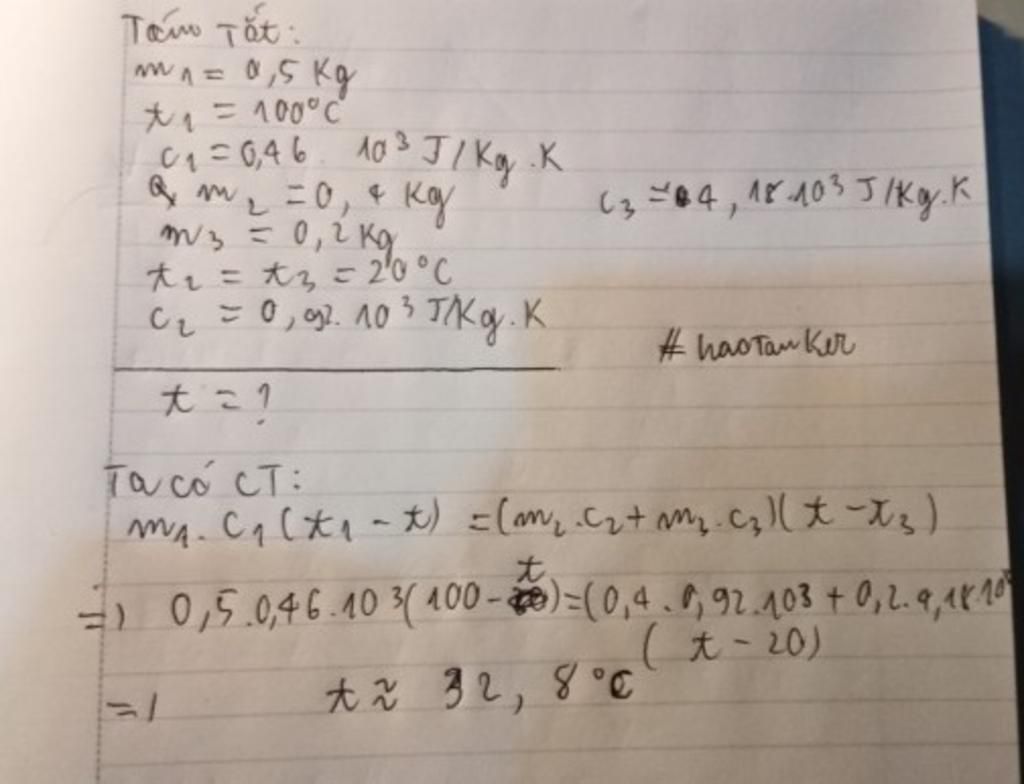 Tóm Tắt:
m₁ = 0,5 Kg
t₁ = 100°C
c₁ = 0,46 . 10³ J/Kg.K
m₂ = 0,4 Kg
c₃ = 4,18.10³ J/Kg.K
m₃ = 0,2 Kg
t₂ = t₃ = 20°C
c₂ = 0,92.10³ J/Kg.K
#haoTanKer
t = ?
Ta có CT:
m₁.c₁(t₁ - t) = (m₂.c₂ + m₃.c₃)(t - t₃)
=) 0,5.0,46.10³(100 - t) = (0,4.0,92.10³ + 0,2.4,18.10³
(t - 20)
=) t ≈ 32,8°C